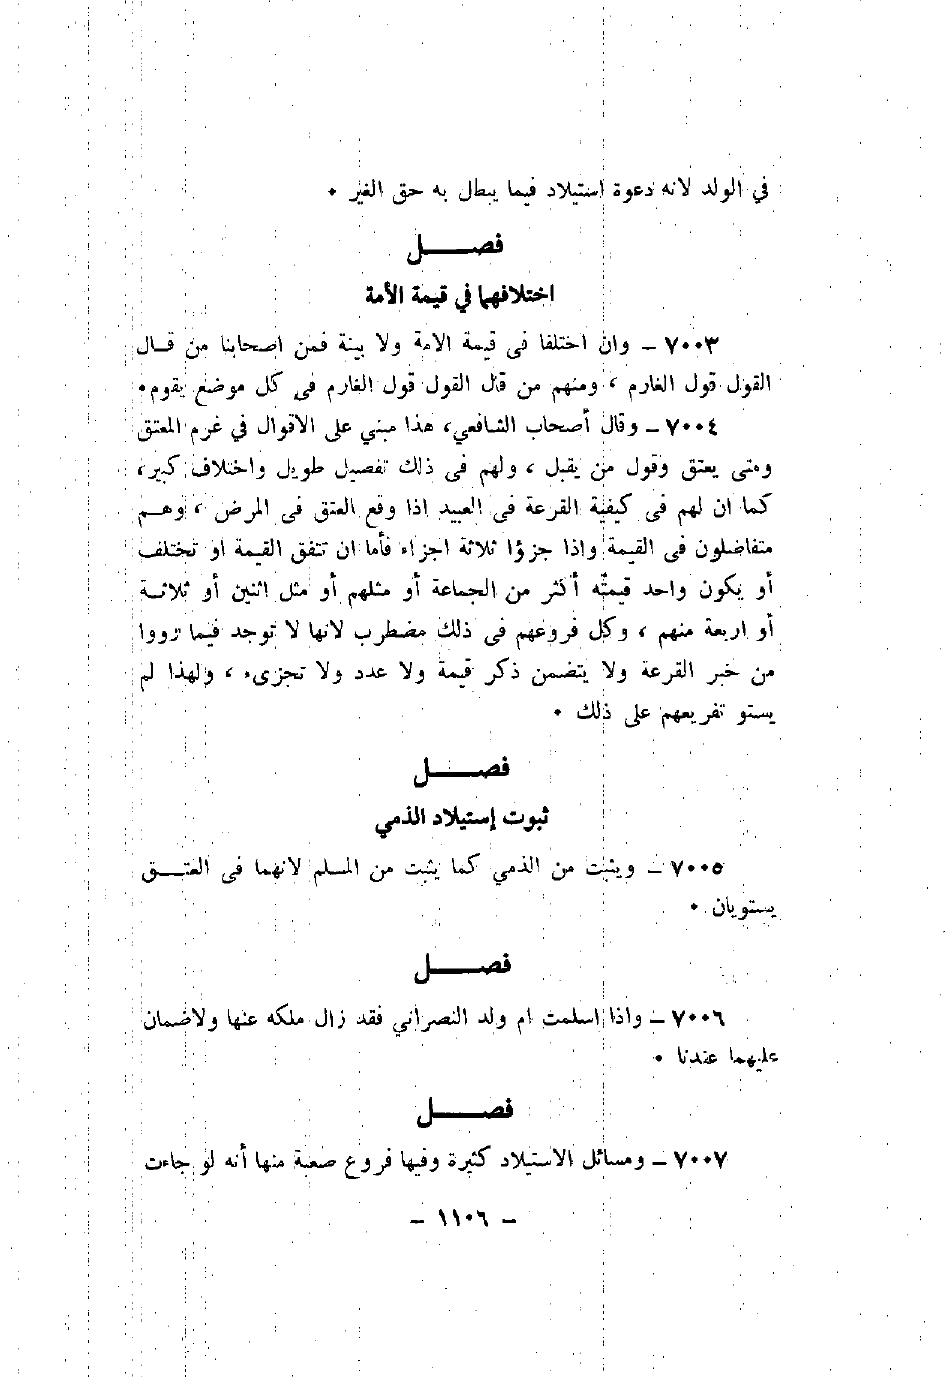 في الولد لانه دعوة استيلاد فيما يبطل به حق الغير •
فصــــل
اختلافهما في قيمة الأمة
٧٠٠٣ – وان اختلفا فى قيمة الامة ولا بينة فمن اصحابنا من قــال
القول قول الغارم ، ومنهم من قال القول قول الغارم فى كل موضع يقوم•
٧٠٠٤ – وقال أصحاب الشافعي، هذا مبني على الاقوال في غرم المعتق
ومتى يعتق وقول من يقبل ، ولهم فى ذلك تفصيل طويل واختلاف كبير،
كما ان لهم فى كيفية القرعة فى العبيد اذا وقع العتق فى المرض ، وهــم
متفاضلون فى القيمة واذا جزؤا ثلاثة اجزاء فأما ان تتفق القيمة او تختلف
أو يكون واحد قيمته أكثر من الجماعة أو مثلهم أو مثل اثنين أو ثلاثــة
أو اربعة منهم ، وكل فروعهم فى ذلك مضطرب لانها لا توجد فيما رووا
من خبر القرعة ولا يتضمن ذكر قيمة ولا عدد ولا تجزىء ، ولهذا لم
يستو تفريعهم على ذلك •
فصــــل
ثبوت إستيلاد الذمي
٧٠٠٥ – ويثبت من الذمي كما يثبت من المسلم لانهما فى العتــــق
يستويان •
فصــــل
٧٠٠٦ – واذا اسلمت ام ولد النصراني فقد زال ملكه عنها ولاضمان
عليهما عندنا •
فصــــل
٧٠٠٧ – ومسائل الاستيلاد كثيرة وفيها فروع صعبة منها أنه لو جاءت
– ١١٠٦ –